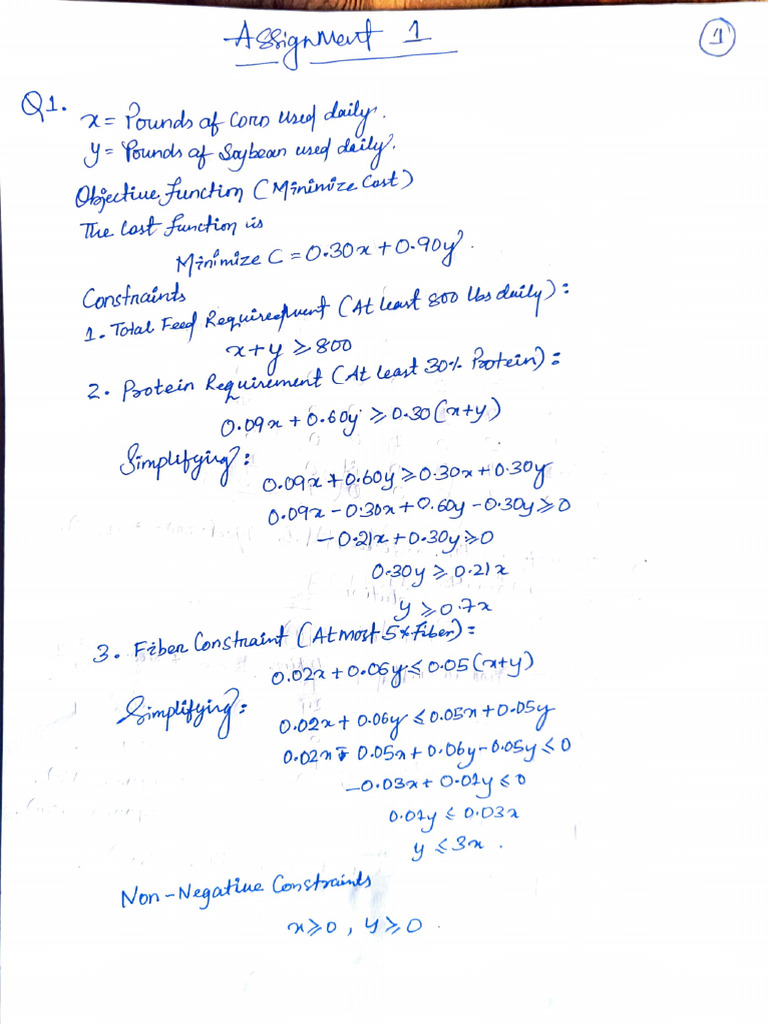 Assignment 1
1
Q1.
x = Pounds of Corn used daily.
y = Pounds of Soybean used daily.
Objective Function (Minimize Cost)
The Cost function is
Minimize C = 0.30x + 0.90y.
Constraints
1. Total Feed Requirement (At least 800 lbs daily):
x+y ≥ 800
2. Protein Requirement (At least 30% Protein):
0.09x + 0.60y ≥ 0.30(x+y)
Simplifying:
0.09x + 0.60y ≥ 0.30x + 0.30y
0.09x - 0.30x + 0.60y - 0.30y ≥ 0
-0.21x + 0.30y ≥ 0
0.30y ≥ 0.21x
y ≥ 0.7x
3. Fiber Constraint (At most 5% Fiber):
0.02x + 0.06y ≤ 0.05(x+y)
Simplifying:
0.02x + 0.06y ≤ 0.05x + 0.05y
0.02x - 0.05x + 0.06y - 0.05y ≤ 0
-0.03x + 0.01y ≤ 0
0.01y ≤ 0.03x
y ≤ 3x.
Non-Negative Constraints
x ≥ 0, y ≥ 0.